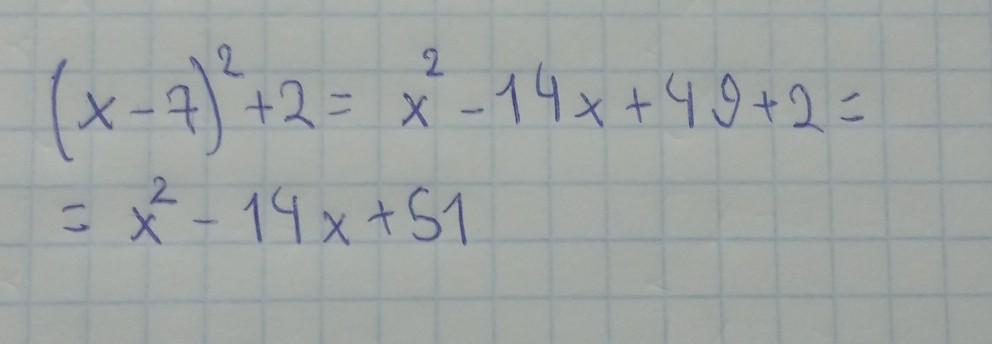 (x-7)²+2= x²-14x+49+2=
= x²-14x+51